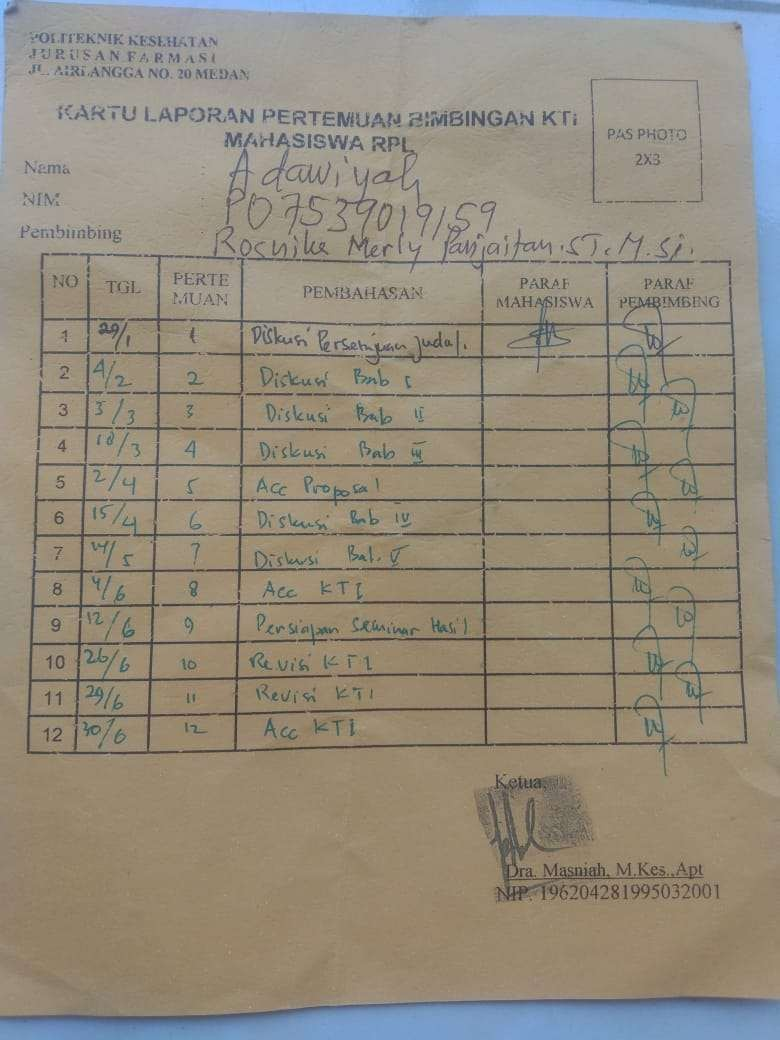 POLITEKNIK KESEHATAN
JURUSAN FARMASI
JL. AIRLANGGA NO. 20 MEDAN
KARTU LAPORAN PERTEMUAN BIMBINGAN KTI
MAHASISWA RPL
PAS PHOTO
2X3
Nama Adawiyah
NIM P07539019159
Pembimbing Rosnike Merly Panjaitan. ST. M.Si.
NO TGL PERTE MUAN PEMBAHASAN PARAF MAHASISWA PARAF PEMBIMBING
1 29/1 1 Diskusi Persetujuan judul.
2 4/2 2 Diskusi Bab I
3 3/3 3 Diskusi Bab II
4 18/3 4 Diskusi Bab III
5 2/4 5 Acc Proposal
6 15/4 6 Diskusi Bab IV
7 14/5 7 Diskusi Bab. V
8 4/6 8 Acc KTI
9 12/6 9 Persiapan Seminar Hasil
10 26/6 10 Revisi KTI
11 29/6 11 Revisi KTI
12 30/6 12 Acc KTI
Ketua,
Dra. Masniah, M.Kes.,Apt
NIP. 196204281995032001